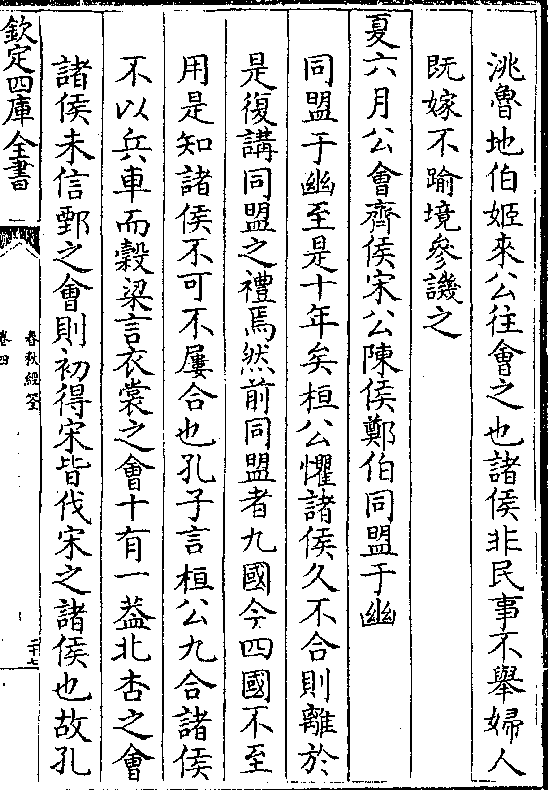 洮魯地伯姬來公往會之也諸侯非民事不舉婦人
既嫁不踰境參譏之
夏六月公會齊侯宋公陳侯鄭伯同盟于幽
同盟于幽至是十年矣桓公懼諸侯久不合則離於
是復講同盟之禮焉然前同盟者九國今四國不至
用是知諸侯不可不屢合也孔子言桓公九合諸侯
不以兵車而穀梁言衣裳之會十有一葢北杏之會
諸侯未信鄄之會則初得宋皆伐宋之諸侯也故孔
欽定四庫全書
春秋經筌
卷四
二十七